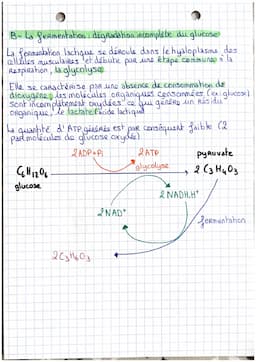 B- La fermentation : dégradation incomplète du glucose
La fermentation lactique se déroule dans le hyaloplasme des
cellules musculaires et débute par une étape commune à la
respiration, la glycolyse.
Elle se caractérise par une absence de consommation de
dioxygène, les molécules organiques consommées (ex: glucose)
sont incomplètement oxydées ce qui génère un résidu
organique, le lactate/acide lactique
La quantité d'ATP générés est par conséquent faible (2
par molécules de glucose oxydée)
2ADP+Pi 2ATP pyruvate
C6H12O6 glycolyse 2 C3H4O3
glucose
2 NADH,H+
2 NAD+
fermentation
2C3H6O3